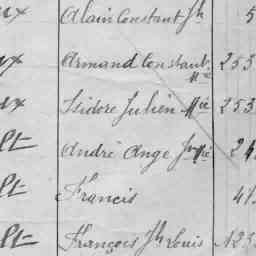 ux Alain Constant Jh 5
ux Armand Constant Mie 253
ux Isidore Julien Mie 253
lt André Ange Jn Mie 24
lt Francis 41
lt François Jh Louis 123